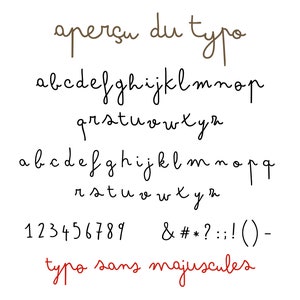 aperçu du typo
abcdefghijklmnop
qrstuvwxyz
abcdefghijklmnopq
rstuvwxyz
123456789 &#*?:;!()-
typo sans majuscules